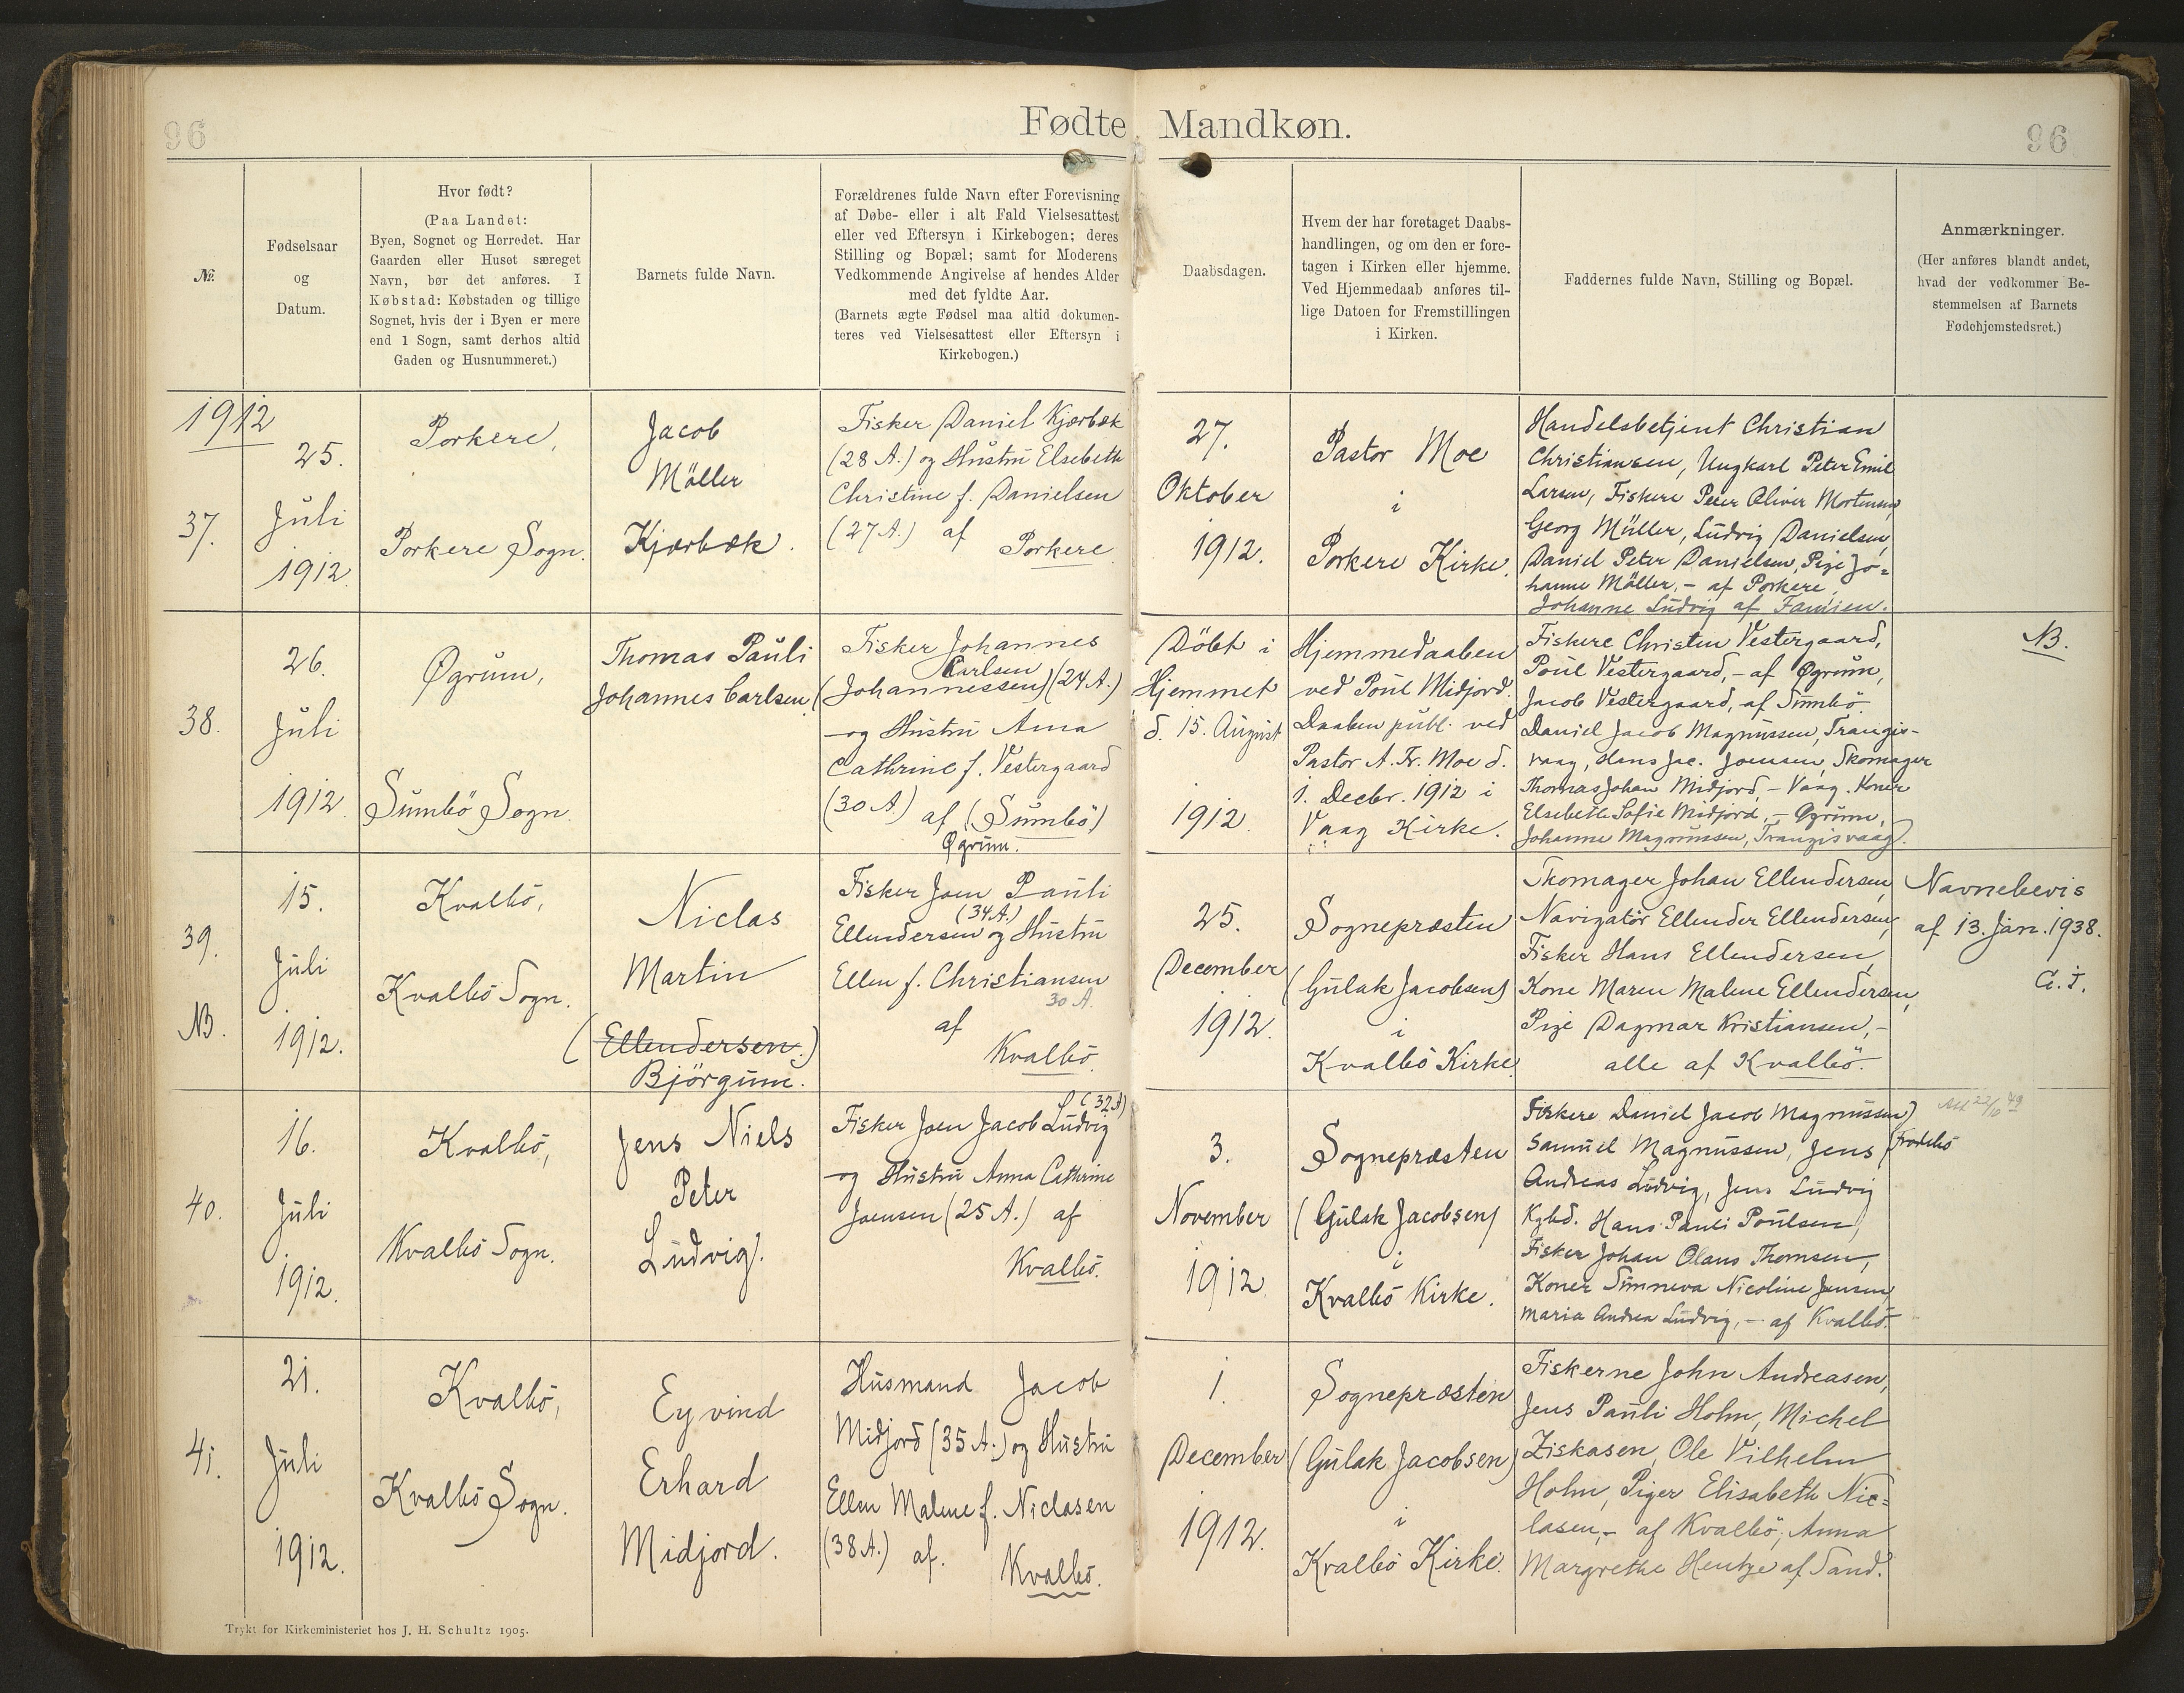 96
Fødte Mandkøn.
96
№
Fødselsaar
og
Datum.
Hvor født?
(Paa Landet:
Byen, Sognet og Herredet. Har
Gaarden eller Huset særeget
Navn, bør det anføres. I
Købstad: Købstaden og tillige
Sognet, hvis der i Byen er mere
end 1 Sogn, samt derhos altid
Gaden og Husnummeret.)
Barnets fulde Navn.
Forældrenes fulde Navn efter Forevisning
af Døbe- eller i alt Fald Vielsesattest
eller ved Eftersyn i Kirkebogen; deres
Stilling og Bopæl; samt for Moderens
Vedkommende Angivelse af hendes Alder
med det fyldte Aar.
(Barnets ægte Fødsel maa altid dokumen-
teres ved Vielsesattest eller Eftersyn i
Kirkebogen.)
Daabsdagen.
Hvem der har foretaget Daabs-
handlingen, og om den er fore-
tagen i Kirken eller hjemme.
Ved Hjemmedaab anføres til-
lige Datoen for Fremstillingen
i Kirken.
Faddernes fulde Navn, Stilling og Bopæl.
Anmærkninger.
(Her anføres blandt andet,
hvad der vedkommer Be-
stemmelsen af Barnets
Fødehjemstedsret.)
1912
37.
25.
Juli
1912
Porkere,
Porkere Sogn.
Jacob
Möller
Kjærbæk.
Fisker Daniel Kjærbæk
(28 A.) og Hustru Elsebeth
Christine f. Danielsen
(27 A.) af Porkere
27.
Oktober
1912.
Pastor Moe
i
Porkere Kirke.
Handelsbetjent Christian
Christiansen, Ungkarl Peter Emil
Larsen, Fiskere Peter Oliver Mortensen,
Georg Müller, Ludvig Danielsen,
Daniel Peter Danielsen, Pige Jo=
hanne Möller, - af Porkere.
Johanne Ludvig af Famien.
38.
26.
Juli
1912
Øgrum,
Sumbö Sogn.
Thomas Pauli
Johannes Carlsen.
Fisker Johannes
Carlsen
(Johannessen) (24 A.)
- og Hustru Anna
Cathrine f. Vestergaard
(30 A) af (Sumbö)
Øgrum.
Döbt i
Hjemmet
d. 15. August
1912.
Hjemmedaaben
ved Poul Midjord.
Daaben publ. ved
Pastor A. Fr. Moe d.
1. Decbr. 1912 i
Vaag Kirke.
Fiskere Christen Vestergaard,
Poul Vestergaard, - af Øgrum,
Jacob Vestergaard, af Sumbö.
Daniel Jacob Magnussen, Trangis-
vaag, Hans Jac. Joensen, Skomager
Thomas Johan Midjord, - Vaag. Koner
Elsebeth Sofie Midjord, - Øgrum,
Johanne Magnussen, Trangisvaag.
NB.
39.
NB.
15.
Juli
1912.
Kvalbö,
Kvalbö Sogn.
Niclas
Martin
(Ellendersen.)
Björgum.
Fisker Joen Pauli
(34 A.)
Ellendersen og Hustru
Ellen f. Christiansen
30 A.
af
Kvalbö.
25.
December
1912.
Sognepræsten
(Gulak Jacobsen)
i
Kvalbö Kirke.
Skomager Johan Ellendersen,
Navigatör Ellender Ellendersen,
Fisker Hans Ellendersen,
Kone Maren Malene Ellendersen,
Pige Dagmar Kristiansen, -
alle af Kvalbö.
Navnebevis
af 13. Jan. 1938.
40.
16.
Juli
1912.
Kvalbö,
Kvalbö Sogn.
Jens Niels
Peter
Ludvig.
(32 A)
Fisker Joen Jacob Ludvig
- og Hustru Anna Cathrine
Joensen (25 A.) af
Kvalbö.
3.
November
1912.
Sognepræsten
(Gulak Jacobsen)
i
Kvalbö Kirke.
Fiskere Daniel Jacob Magnussen,
Samuel Magnussen, Jens (Frodebö
Andreas Ludvig, Jens Ludvig
Kgbd. Hans Pauli Poulsen,
Fisker Johan Olaus Thomsen,
Koner Sunneva Nicoline Jensen,
Maria Andrea Ludvig, - af Kvalbö.
41.
21.
Juli
1912.
Kvalbö,
Kvalbö Sogn.
Eyvind
Erhard
Midjord.
Husmand Jacob
Midjord (35 A.) og Hustru
Ellen Malene f. Niclasen
(38 A.) af.
Kvalbö.
1.
December
1912.
Sognepræsten
(Gulak Jacobsen)
i
Kvalbö Kirke.
Fiskerne John Andreasen,
Jens Pauli Holm, Michel
Ziskasen, Ole Vilhelm
Holm, Piger Elisabeth Nic=
lasen, - af Kvalbö; Anna
Margrethe Hentze af Sand.
Trykt for Kirkeministeriet hos J. H. Schultz 1905.